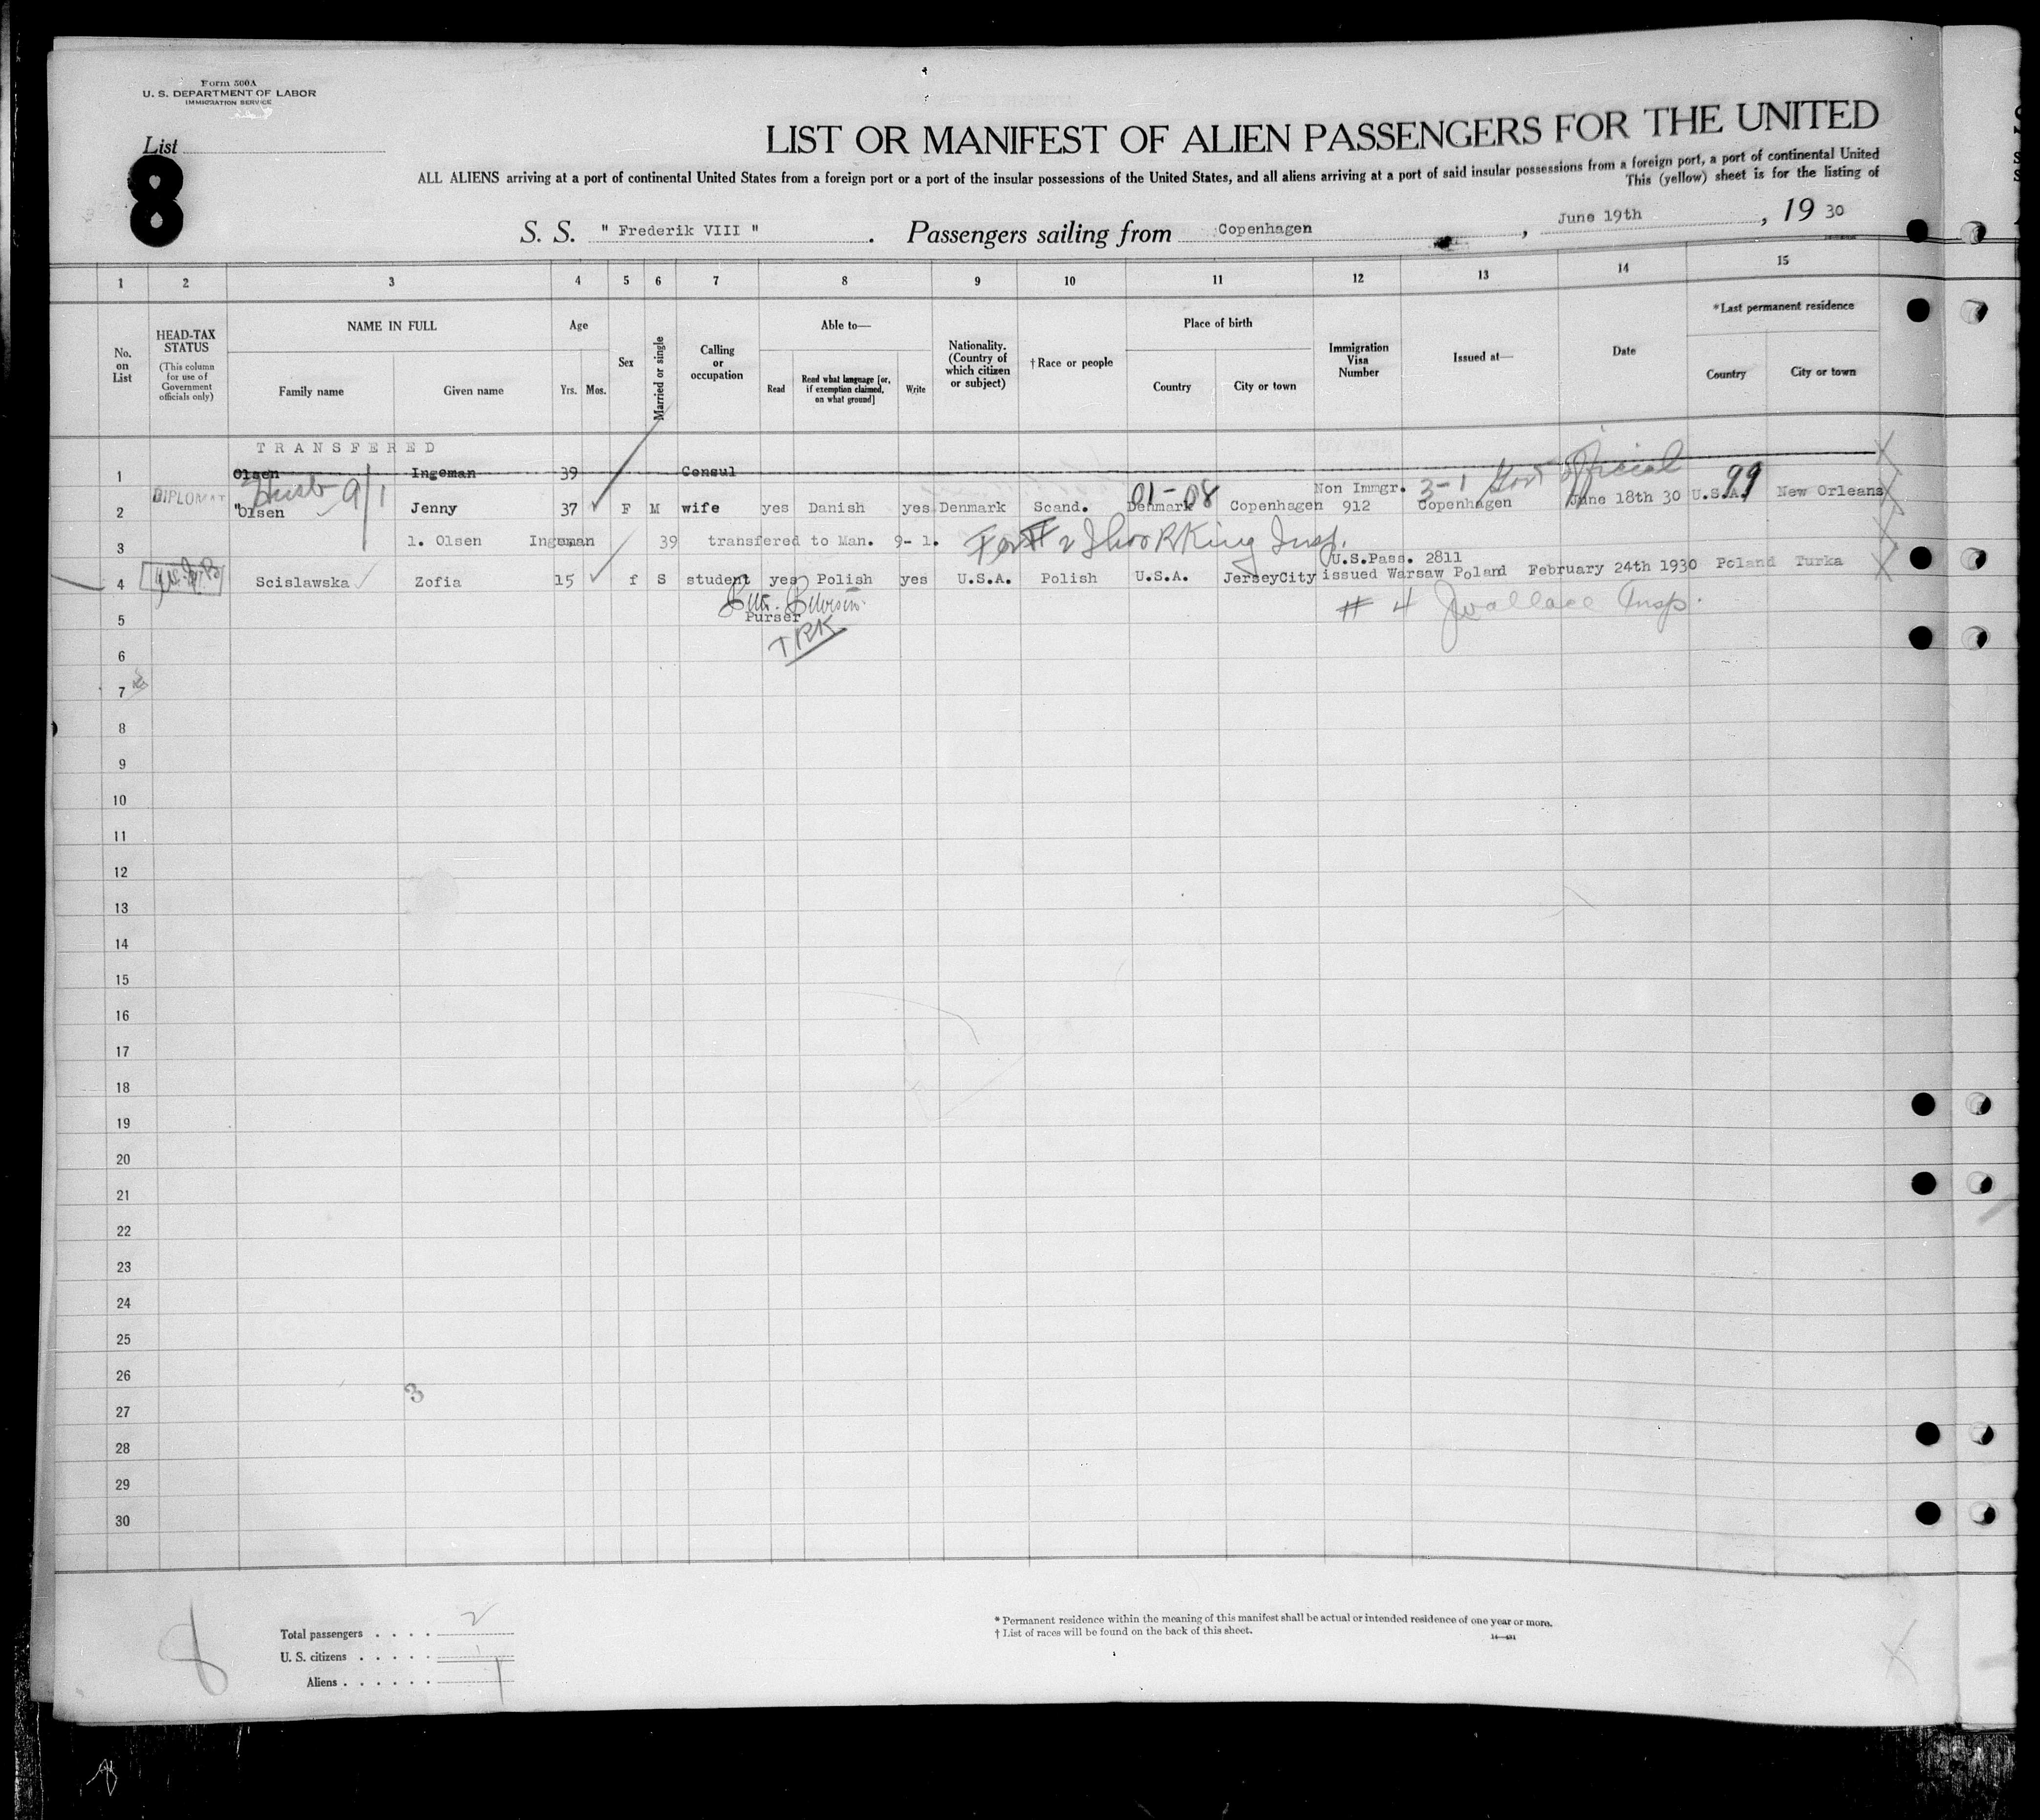 Form 500A
U. S. DEPARTMENT OF LABOR
IMMIGRATION SERVICE
List
8
LIST OR MANIFEST OF ALIEN PASSENGERS FOR THE UNITED
ALL ALIENS arriving at a port of continental United States from a foreign port or a port of the insular possessions of the United States, and all aliens arriving at a port of said insular possessions from a foreign port, a port of continental United
This (yellow) sheet is for the listing of
S. S. " Frederik VIII " . Passengers sailing from Copenhagen , June 19th , 19 30
1 2 3 4 5 6 7 8 9 10 11 12 13 14 15
No. on List
HEAD-TAX STATUS
(This column for use of Government officials only)
NAME IN FULL
Family name Given name
Age
Yrs. Mos.
Sex
Married or single
Calling or occupation
Able to—
Read Read what language [or, if exemption claimed, on what ground] Write
Nationality. (Country of which citizen or subject)
† Race or people
Place of birth
Country City or town
Immigration Visa Number
Issued at—
Date
*Last permanent residence
Country City or town
TRANSFERED
1 Olsen Ingeman 39 Consul
3-1 Gov't Official
DIPLOMAT Husb 9/1 01-08 Non Immgr. 99
2 "Olsen Jenny 37 F M wife yes Danish yes Denmark Scand. Denmark Copenhagen 912 Copenhagen June 18th 30 U.S.A. New Orleans
3 1. Olsen Ingeman 39 transfered to Man. 9- 1. For # 2 Thos R King Insp.
U.S.Pass. 2811
4 Scislawska Zofia 15 f S student yes Polish yes U.S.A. Polish U.S.A. JerseyCity issued Warsaw Poland February 24th 1930 Poland Turka
# 4 J Wallace Insp.
5 Purser
TRK
6
7
8
9
10
11
12
13
14
15
16
17
18
19
20
21
22
23
24
25
26
3
27
28
29
30
8
Total passengers . . . . 2
U. S. citizens . . . . . 1
Aliens . . . . . . 1
* Permanent residence within the meaning of this manifest shall be actual or intended residence of one year or more.
† List of races will be found on the back of this sheet.